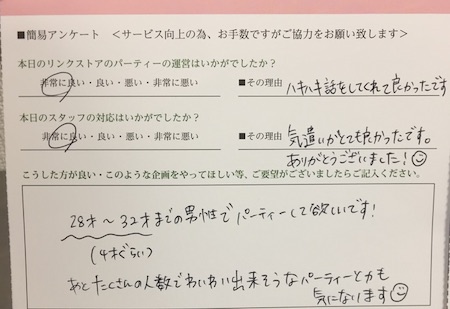 ■簡易アンケート ＜サービス向上の為、お手数ですがご協力をお願い致します＞
本日のリンクストアのパーティーの運営はいかがでしたか？
非常に良い・良い・悪い・非常に悪い ■その理由 ハキハキ話をしてくれて良かったです
本日のスタッフの対応はいかがでしたか？
非常に良い・良い・悪い・非常に悪い ■その理由 気遣いがとても良かったです。
ありがとうございました！
こうした方が良い・このような企画をやってほしい等、ご要望がございましたらご記入ください。
28才～32才までの男性でパーティーして欲しいです！
(4才ぐらい)
あとたくさんの人数でわいわい出来そうなパーティーとかも
気になります